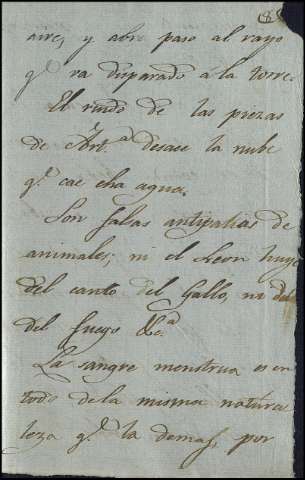 aire, y abre paso al rayo
q.e va disparado á la torre.
El ruido de las piezas
de Art.a desace la nube
q.e cae hha agua.
Son falsas antipatias de
animales; ni el Leon huye
del canto del Gallo, ni del
del fuego &c.a
La sangre menstrua es en
todo de la misma natura
leza q.e la demas, por